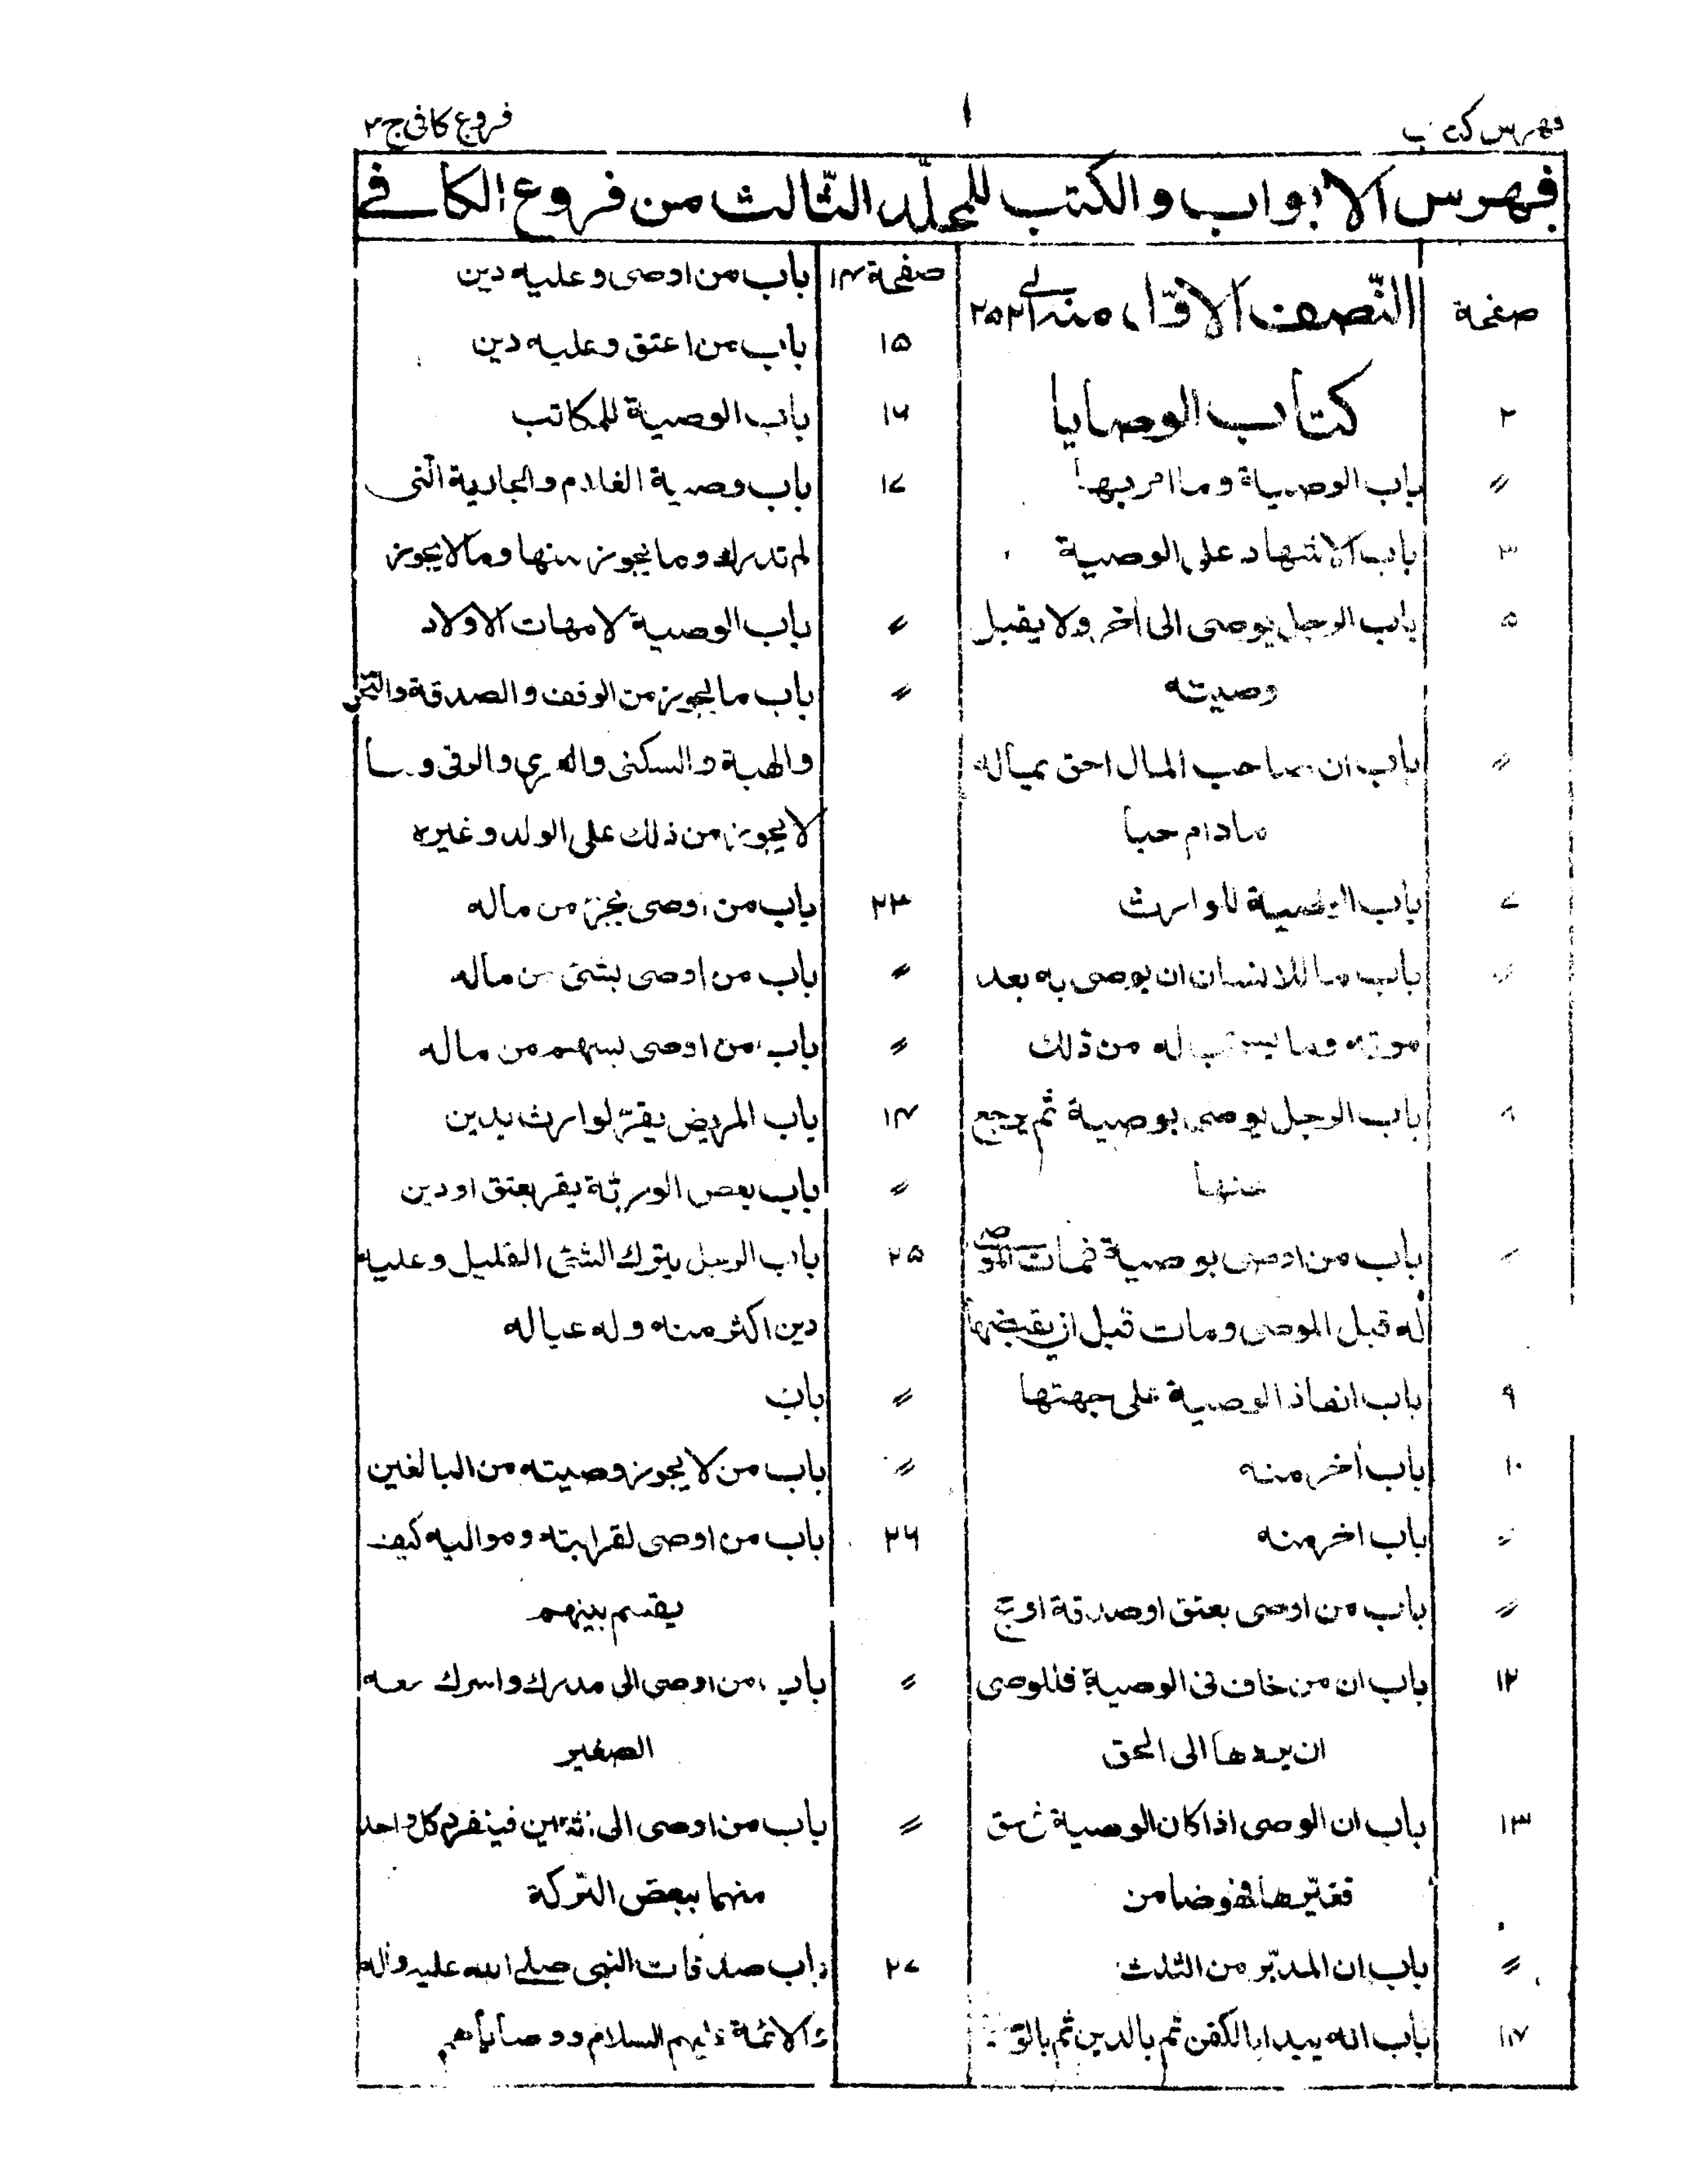 فهرس كتب
١
فروع كافى ج ٣
فهرس الابواب والكتب للمجلّد الثّالث من فروع الكافے
صفحة
النّصف الاوّل منه الے ٢٥٢
٢
كتاب الوصايا
〃
باب الوصية وما امر بها
٣
باب الاشهاد على الوصية
٥
باب الرجل يوصى الى اخر ولا يقبل
وصيته
〃
باب ان صاحب المال احق بماله
مادام حيا
٧
باب الوصية للوارث
〃
باب ما للانسان ان يوصى به بعد
موته وما يستحب له من ذلك
٨
باب الرجل يوصى بوصية ثم يرجع
عنها
〃
باب من اوصى بوصية فمات الموصى
له قبل الموصى ومات قبل ان يقبضها
٩
باب انفاذ الوصية على جهتها
١٠
باب اخر منه
〃
باب اخر منه
〃
باب من اوصى بعتق او صدقة او حج
١٢
باب ان من خاف فى الوصية فللوصى
ان يردها الى الحق
١٣
باب ان الوصى اذا كان الوصية فى حق
فغيّرها فهو ضامن
〃
باب ان المدبّر من الثلث
١٤
باب انه يبدا بالكفن ثم بالدين ثم
صفحة ١٤
باب من اوصى وعليه دين
١٥
باب من اعتق وعليه دين
١٦
باب الوصية للمكاتب
١٧
باب وصية الغلام والجارية الّتى
لم تدرك وما يجوز منها وما لا يجوز
〃
باب الوصية لامهات الاولاد
〃
باب ما يجوز من الوقف والصدقة والنّحل
والهبة والسكنى والعمرى والرقبى وما
لا يجوز من ذلك على الولد وغيره
٢٣
باب من اوصى بجزء من ماله
〃
باب من اوصى بشئ من ماله
〃
باب من اوصى بسهم من ماله
١٤
باب المريض يقرّ لوارث بدين
〃
باب بعض الورثة يقر بعتق او دين
٢٥
باب الرجل يترك الشئ القليل وعليه
دين اكثر منه وله عياله
〃
باب
〃
باب من لا يجوز وصيته من البالغين
٢٦
باب من اوصى لقرابته ومواليه كيف
يقسم بينهم
〃
باب من اوصى الى مدرك واشرك معه
الصغير
〃
باب من اوصى الى اثنين فينفرد كل واحد
منهما ببعض التّركة
٢٧
باب صدقات النبى صلے الله عليه واله
والائمة عليهم السلام ووصاياهم